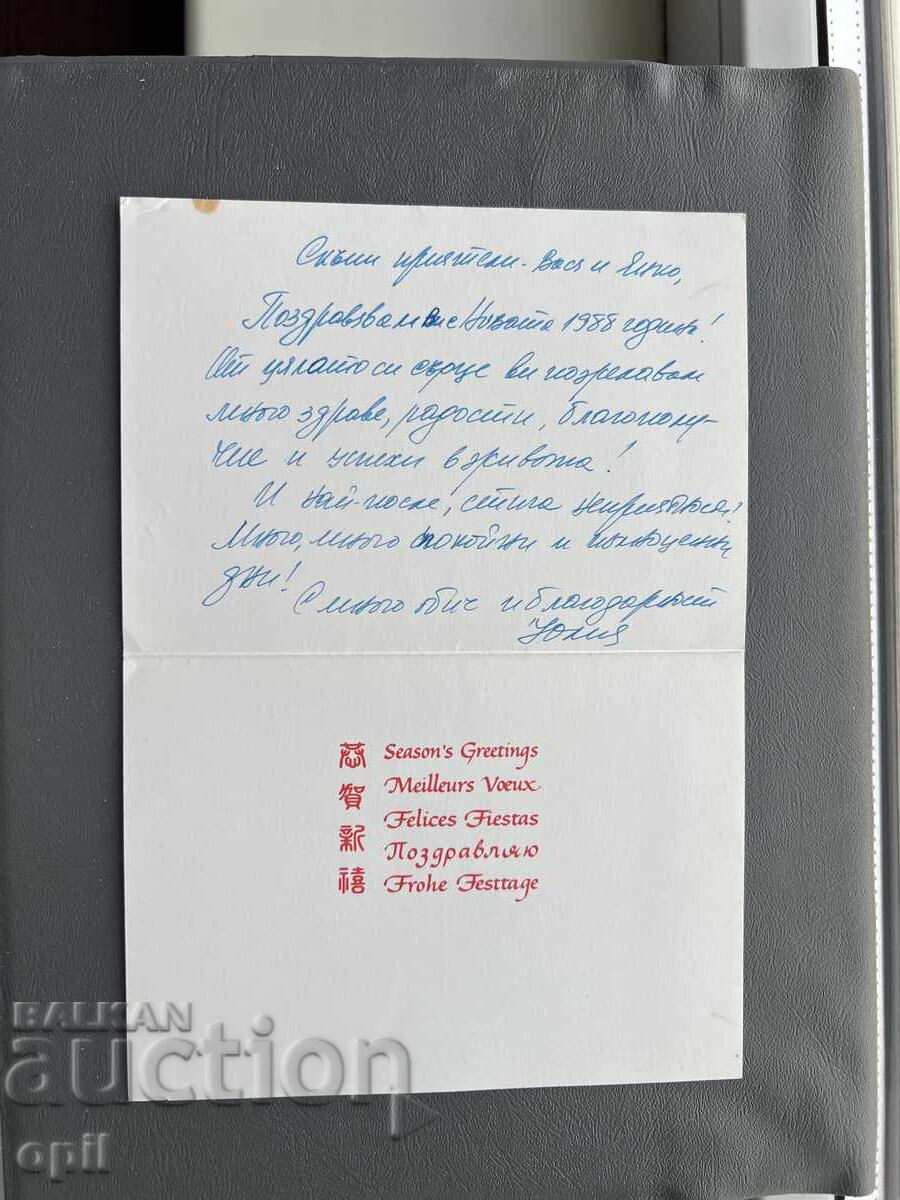 Скъпи приятели - Вася и Янко,
Поздравявам Ви с Новата 1988 година!
От цялото си сърце ви пожелавам
много здраве, радости, благополу-
чие и успехи в живота!
И най-после, стига неприятности!
Много, много спокойни и пълноценни
дни!
С много обич и благодарност
Юлия
恭賀新禧
Season's Greetings
Meilleurs Vœux
Felices Fiestas
Поздравляю
Frohe Festtage
BALKAN
auction
opil